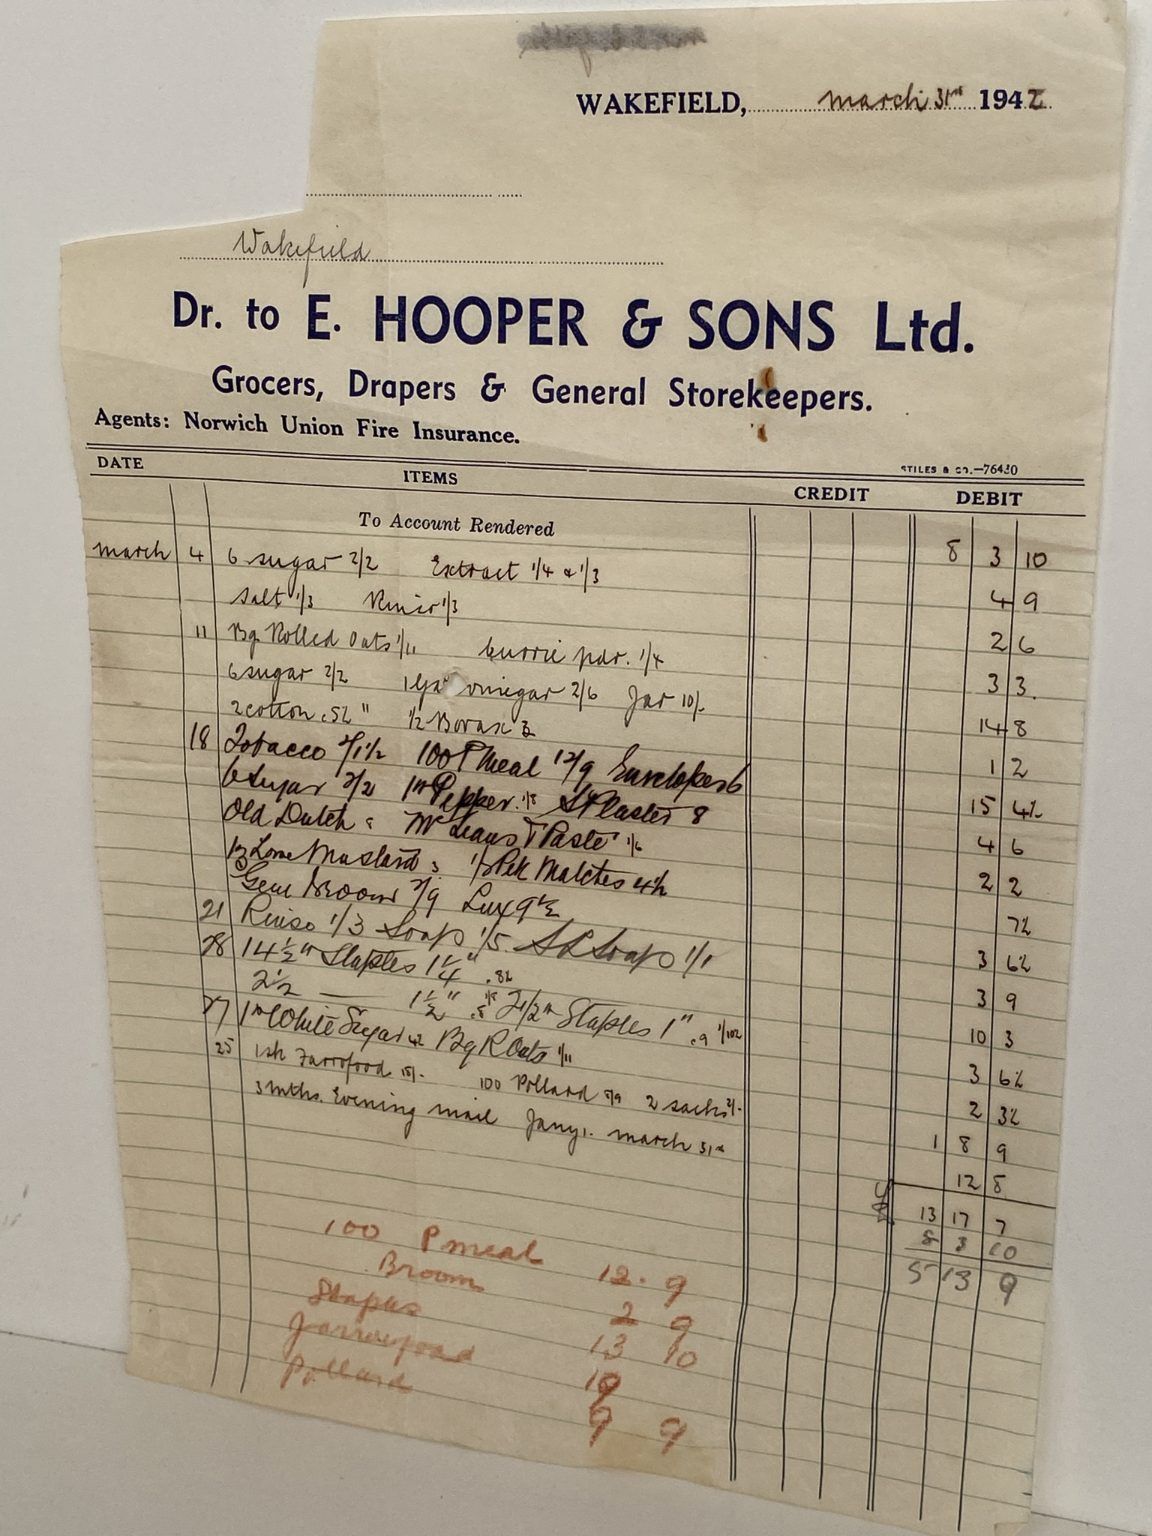 WAKEFIELD, march 31st 1942
Wakefield
Dr. to E. HOOPER & SONS Ltd.
Grocers, Drapers & General Storekeepers.
Agents: Norwich Union Fire Insurance.
STILES & CO.—76430
DATE ITEMS CREDIT DEBIT
To Account Rendered 8 3 10
march 4 6 sugar 2/2 Extract 1/4 & 1/3 4 9
Salt 1/3 Rinso 1/3 2 6
11 Bg. Rolled Oats 1/11 Currie pdr. 1/4 3 3.
6 sugar 2/2 1 Gal vinegar 2/6 Jar 10/- 14 8
2 cotton .5½ " ½ Borax 3 1 2
18 Tobacco 2/1½ 100 P Meal 12/9 Envelopes 6 15 4½
6 Sugar 2/2 Pepper 1/8 St Plaster 8 4 6
Old Dutch McLeans T Paste 1/6 2 2
Mustard 3 ½ Pkt Matches 4½ 7½
Broom 2/9 Lux 9½ 3 6½
21 Rinso 1/3 Soap 1/5 Soap 1/1 3 9
28 14½" Staples 1¼" 10 3
2½ 1½" 2 1/2 Staples 1" 3 6½
27 White Sugar Bg R Oats 1/11 2 3½
25 Farrofood 15/- 100 Pollard 9/9 2 sacks 1 8 9
3 mths. Evening mail Jany 1. march 31st 12 8
13 17 7
8 3 10
5 13 9
100 P meal 12. 9
Broom 2 9
Staples 13 10
Farrowfood
Pollard 9 9